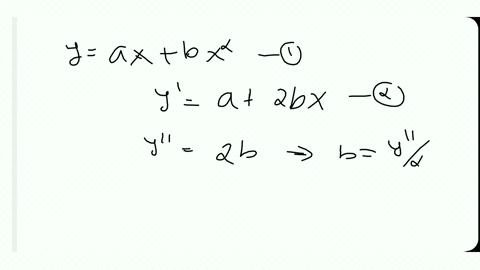 y = ax + bx² —①
y' = a + 2bx —②
y'' = 2b → b = y''/2